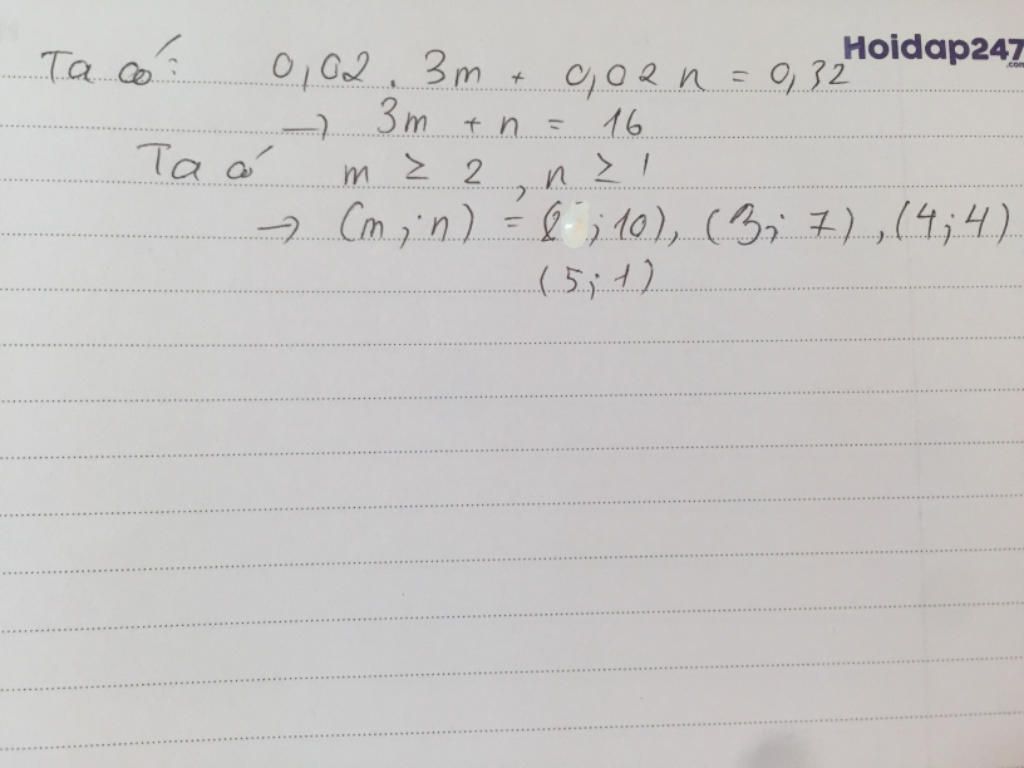 Hoidap247
.com
Ta có: 0,02 . 3m + 0,02 n = 0,32
→ 3m + n = 16
Ta có m ≥ 2 , n ≥ 1
→ (m ; n) = (2 ; 10), (3 ; 7) , (4 ; 4)
(5 ; 1)